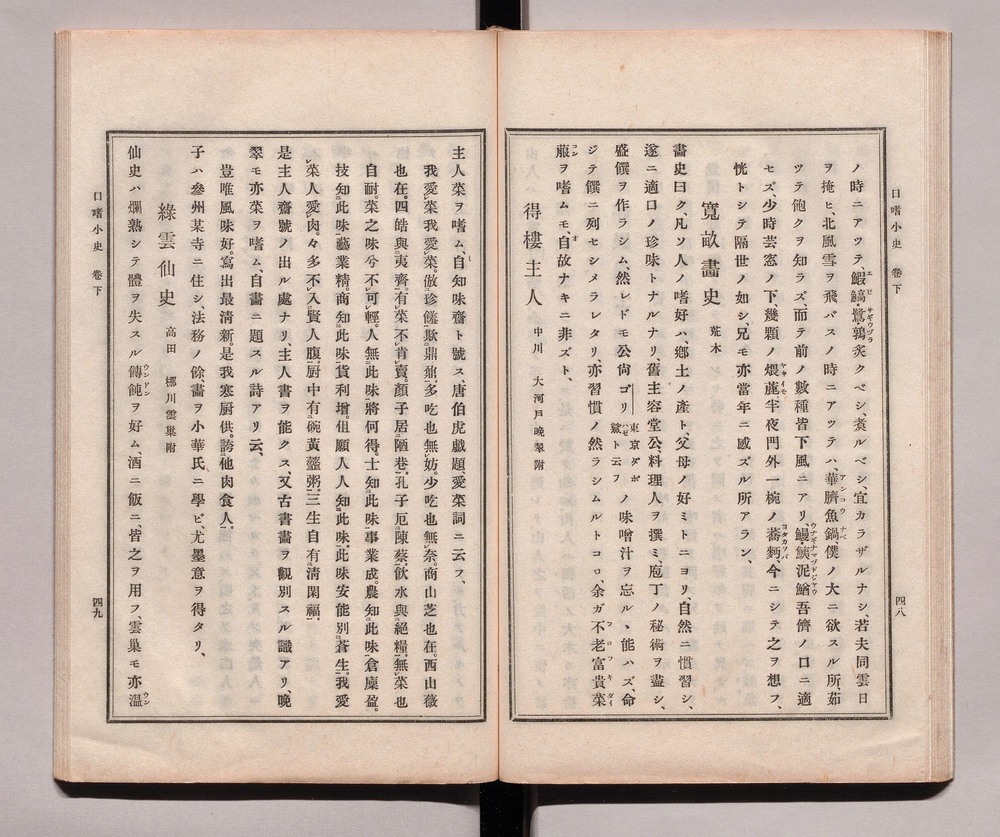 口嗜小史　卷下
四八
ノ時ニアツテ、鰕鱎・鷺鶉炙クベシ、煮ルベシ、宜カラザルナシ、若夫同雲日
ヲ掩ヒ、北風雪ヲ飛バスノ時ニアツテハ、華臍魚鍋僕ノ大ニ欲スル所茹
ツテ飽クヲ知ラズ、而テ前ノ數種皆下風ニアリ、鰻鮧泥鰌吾儕ノ口ニ適
セズ、少時芸窓ノ下、幾顆ノ煨藷、半夜門外一椀ノ蕎麪、今ニシテ之ヲ想フ、
恍トシテ隔世ノ如シ、兄モ亦當年ニ感ズル所アラン、
寬畝畵史　荒木
畵史曰ク、凡ソ人ノ嗜好ハ、鄕土ノ產ト、父母ノ好ミトニヨリ、自然ニ慣習シ、
遂ニ適口ノ珍味トナルナリ、舊主容堂公、料理人ヲ撰ミ、庖丁ノ秘術ヲ盡シ、
盛饌ヲ作ラシム、然レドモ公尙ゴリ東京ダボ鯊ト云フノ味噌汁ヲ忘ル丶能ハズ、命
ジテ饌ニ列セシメラレタリ、亦習慣ノ然ラシムルトコロ、余ガ不老富貴菜
菔ヲ嗜ムモ、自故ナキニ非ズト、
得樓主人　中川　大河戸晩翠附
主人菜ヲ嗜ム、自知味齋ト號ス、唐伯虎戲題、愛菜詞ニ云フ、
我愛菜我愛菜。倣珍饈欺鼎鼐。多吃也無妨。少吃也無奈。商山芝也在。西山薇
也在。四皓與夷齊。有菜不肯賣。顏子居陋巷。孔子厄陳蔡。飮水與絕糧。無菜也
自耐。菜之味兮不可輕。人無此味將何得。士知此味事業成。農知此味倉廩盈。
技知此味藝業精。商知此味貨利增。伹願人人知此味。此味安能別蒼生。我愛
菜人愛肉。々多不入賢人腹。厨中有碗黃虀粥。三生自有淸閑福。
是主人齋號ノ出ル處ナリ、主人書ヲ能クス、又古書畵ヲ觀別スル識アリ、晩
翠モ亦菜ヲ嗜ム、自畵ニ題スル詩アリ云、
豈唯風味好。寫出最淸新。是我寒厨供。誇他肉食人。
子ハ參州某寺ニ住シ、法務ノ餘畵ヲ小華氏ニ學ビ、尤墨意ヲ得タリ、
綠雲仙史　高田　梛川雲巢附
仙史ハ爛熟シテ體ヲ失スル餺飩ヲ好ム、酒ニ飯ニ、皆之ヲ用フ雲巢モ亦溫
口嗜小史　卷下
四九